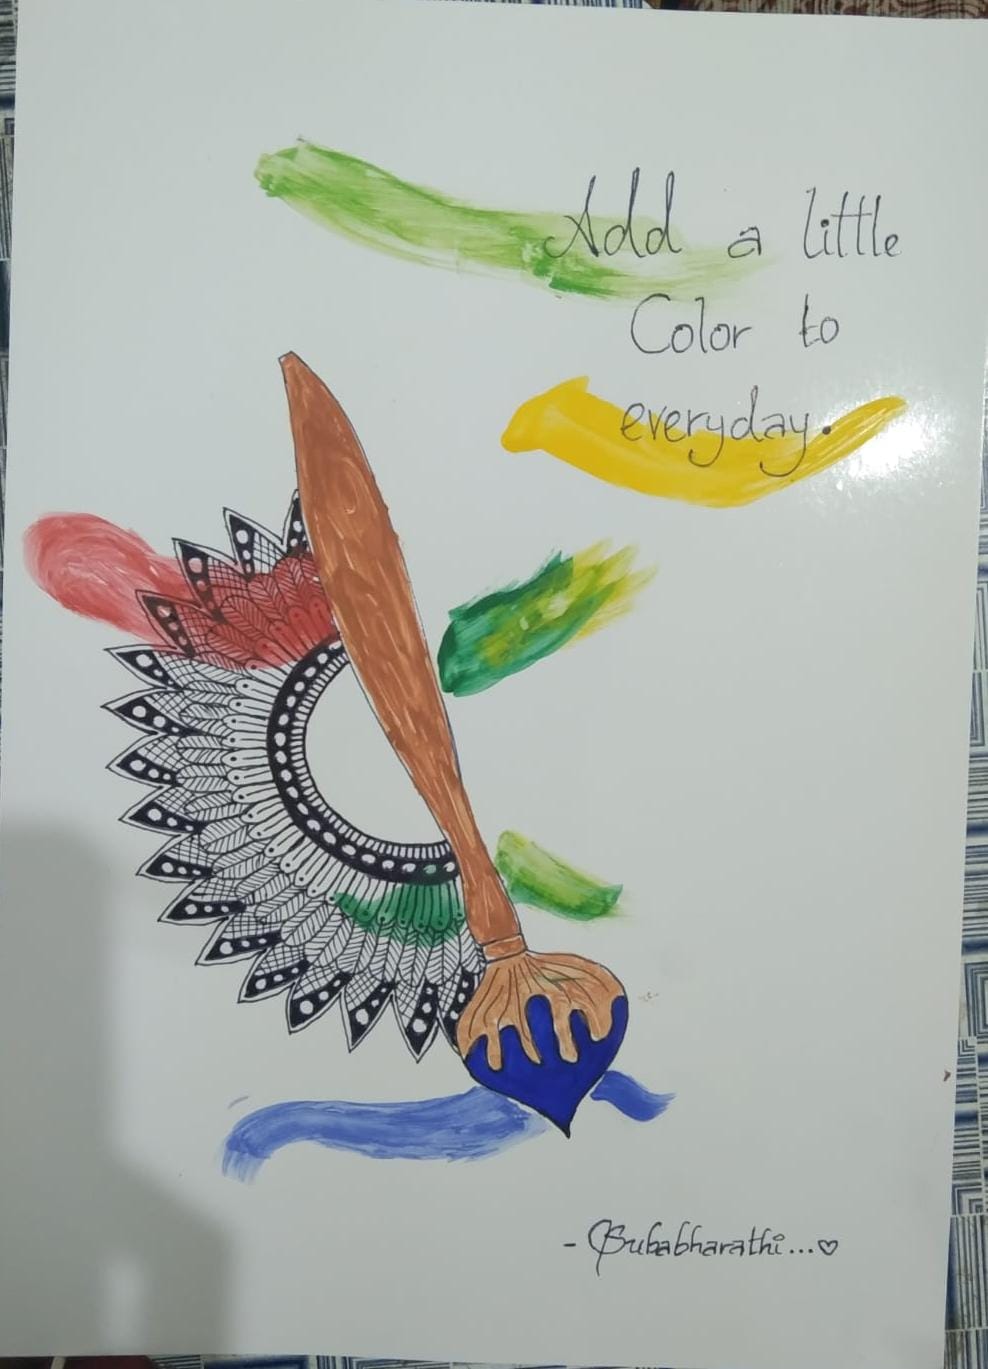 Add a little
Color to
everyday.
- Subabharathi...♡